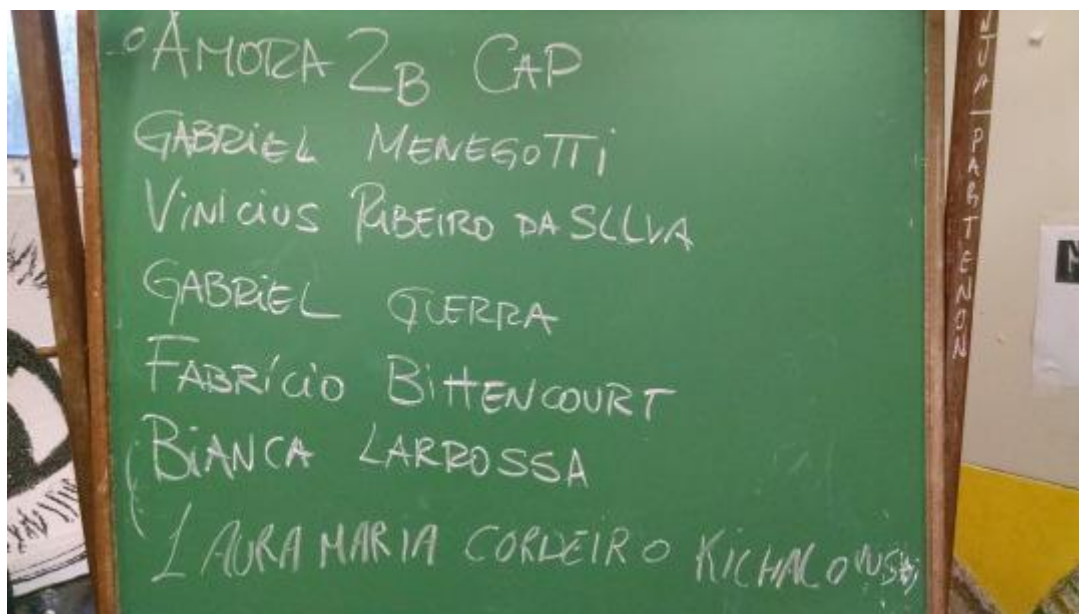 AMORA 2B CAP
GABRIEL MENEGOTTI
VINICIUS RIBEIRO DA SILVA
GABRIEL GUERRA
FABRÍCIO BITTENCOURT
BIANCA LARROSSA
LAURA MARIA CORDEIRO
PARTENON